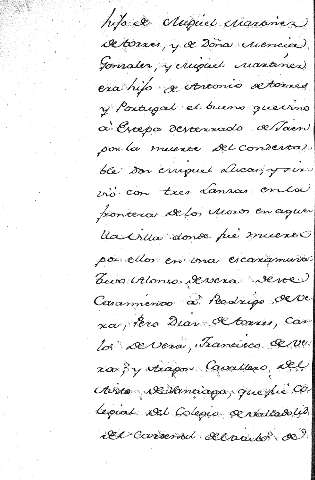 hijo de Miguel Martinez
de torres, y de Doña Mencia
Gonzalez, y Miguel Martinez
era hijo de Antonio de torres
y Portugal el bueno que vino
à Estepa desterrado de Jaen
por la muerte del Condesta-
ble Don Miguel Lucas, y sir-
vió con tres Lanzas en la
frontera de los Moros en aque-
lla Villa donde fué muerto
por ellos en una escaramuza
Tuvo Alonso de vera de este
Casamiento à Rodrigo de Ve-
ra, Pero Diaz de torres, Car-
los de Vera, Francisco de Ve-
ra, y Aragon Cavallero del
Avito de Santiago, que fué Co-
legial del Colegio de Valladolid
del Cardenal de